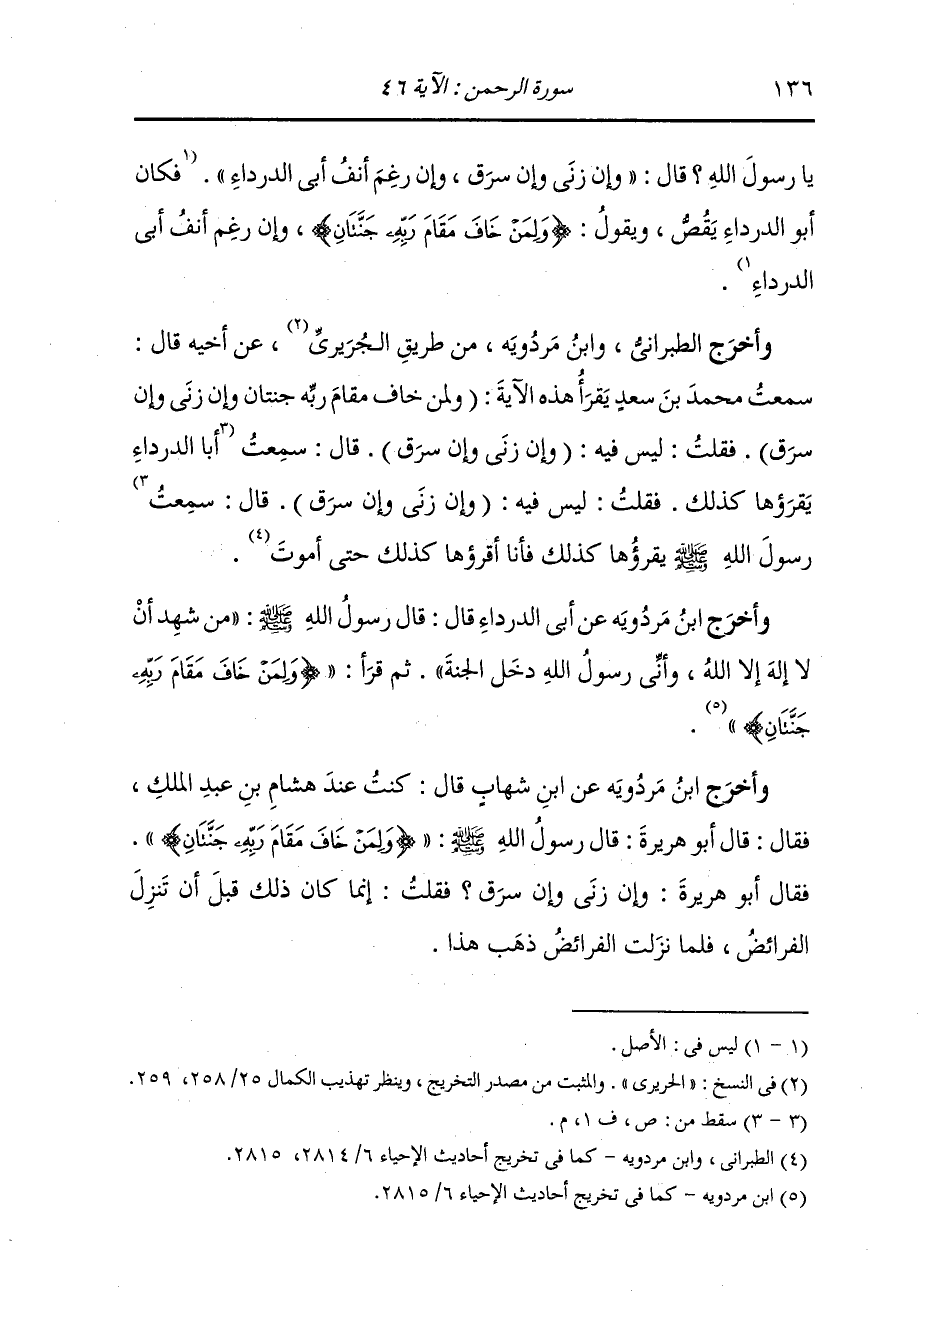 ١٣٦ سورة الرحمن : الآية ٤٦
يا رسولَ اللهِ ؟ قال : « وإن زنَى وإن سرَق ، وإن رغِمَ أنفُ أبى الدرداءِ » . (١ فكان
أبو الدرداءِ يَقُصُّ ، ويقولُ : ﴿وَلِمَنْ خَافَ مَقَامَ رَبِّهِۦ جَنَّتَانِ﴾ ، وإن رغِم أنفُ أبى
الدرداءِ ١) .
وأخرَج الطبرانىُّ ، وابنُ مَردُويَه ، من طريقِ الـجُرَيرىِّ (٢) ، عن أخيه قال :
سمعتُ محمدَ بنَ سعدٍ يَقرَأُ هذه الآيةَ : ( ولمن خاف مقامَ ربِّه جنتان وإن زنَى وإن
سرَق) . فقلتُ : ليس فيه : ( وإن زنَى وإن سرَق ) . قال : سمِعتُ (٣ أبا الدرداءِ
يَقرَؤها كذلك . فقلتُ : ليس فيه : ( وإن زنَى وإن سرَق ) . قال : سمِعتُ ٣)
رسولَ اللهِ ﷺ يقرؤُها كذلك فأنا أقرؤها كذلك حتى أموتَ (٤) .
وأخرَج ابنُ مَردُويَه عن أبى الدرداءِ قال : قال رسولُ اللهِ ﷺ : «من شهِد أنْ
لا إلهَ إلا اللهُ ، وأنِّى رسولُ اللهِ دخَل الجنةَ» . ثم قرَأ : « ﴿وَلِمَنْ خَافَ مَقَامَ رَبِّهِۦ
جَنَّتَانِ﴾ » (٥) .
وأخرَج ابنُ مَردُويَه عن ابنِ شهابٍ قال : كنتُ عندَ هشامِ بنِ عبدِ الملكِ ،
فقال : قال أبو هريرةَ : قال رسولُ اللهِ ﷺ : « ﴿وَلِمَنْ خَافَ مَقَامَ رَبِّهِۦ جَنَّتَانِ﴾ » .
فقال أبو هريرةَ : وإن زنَى وإن سرَق ؟ فقلتُ : إنما كان ذلك قبلَ أن تَنزِلَ
الفرائضُ ، فلما نزَلت الفرائضُ ذهَب هذا .
(١ - ١) ليس فى : الأصل .
(٢) فى النسخ : « الحريرى » . والمثبت من مصدر التخريج ، وينظر تهذيب الكمال ٢٥/ ٢٥٨، ٢٥٩.
(٣ - ٣) سقط من : ص ، ف ١، م .
(٤) الطبرانى ، وابن مردويه - كما فى تخريج أحاديث الإحياء ٦/ ٢٨١٤، ٢٨١٥.
(٥) ابن مردويه - كما فى تخريج أحاديث الإحياء ٦/ ٢٨١٥.